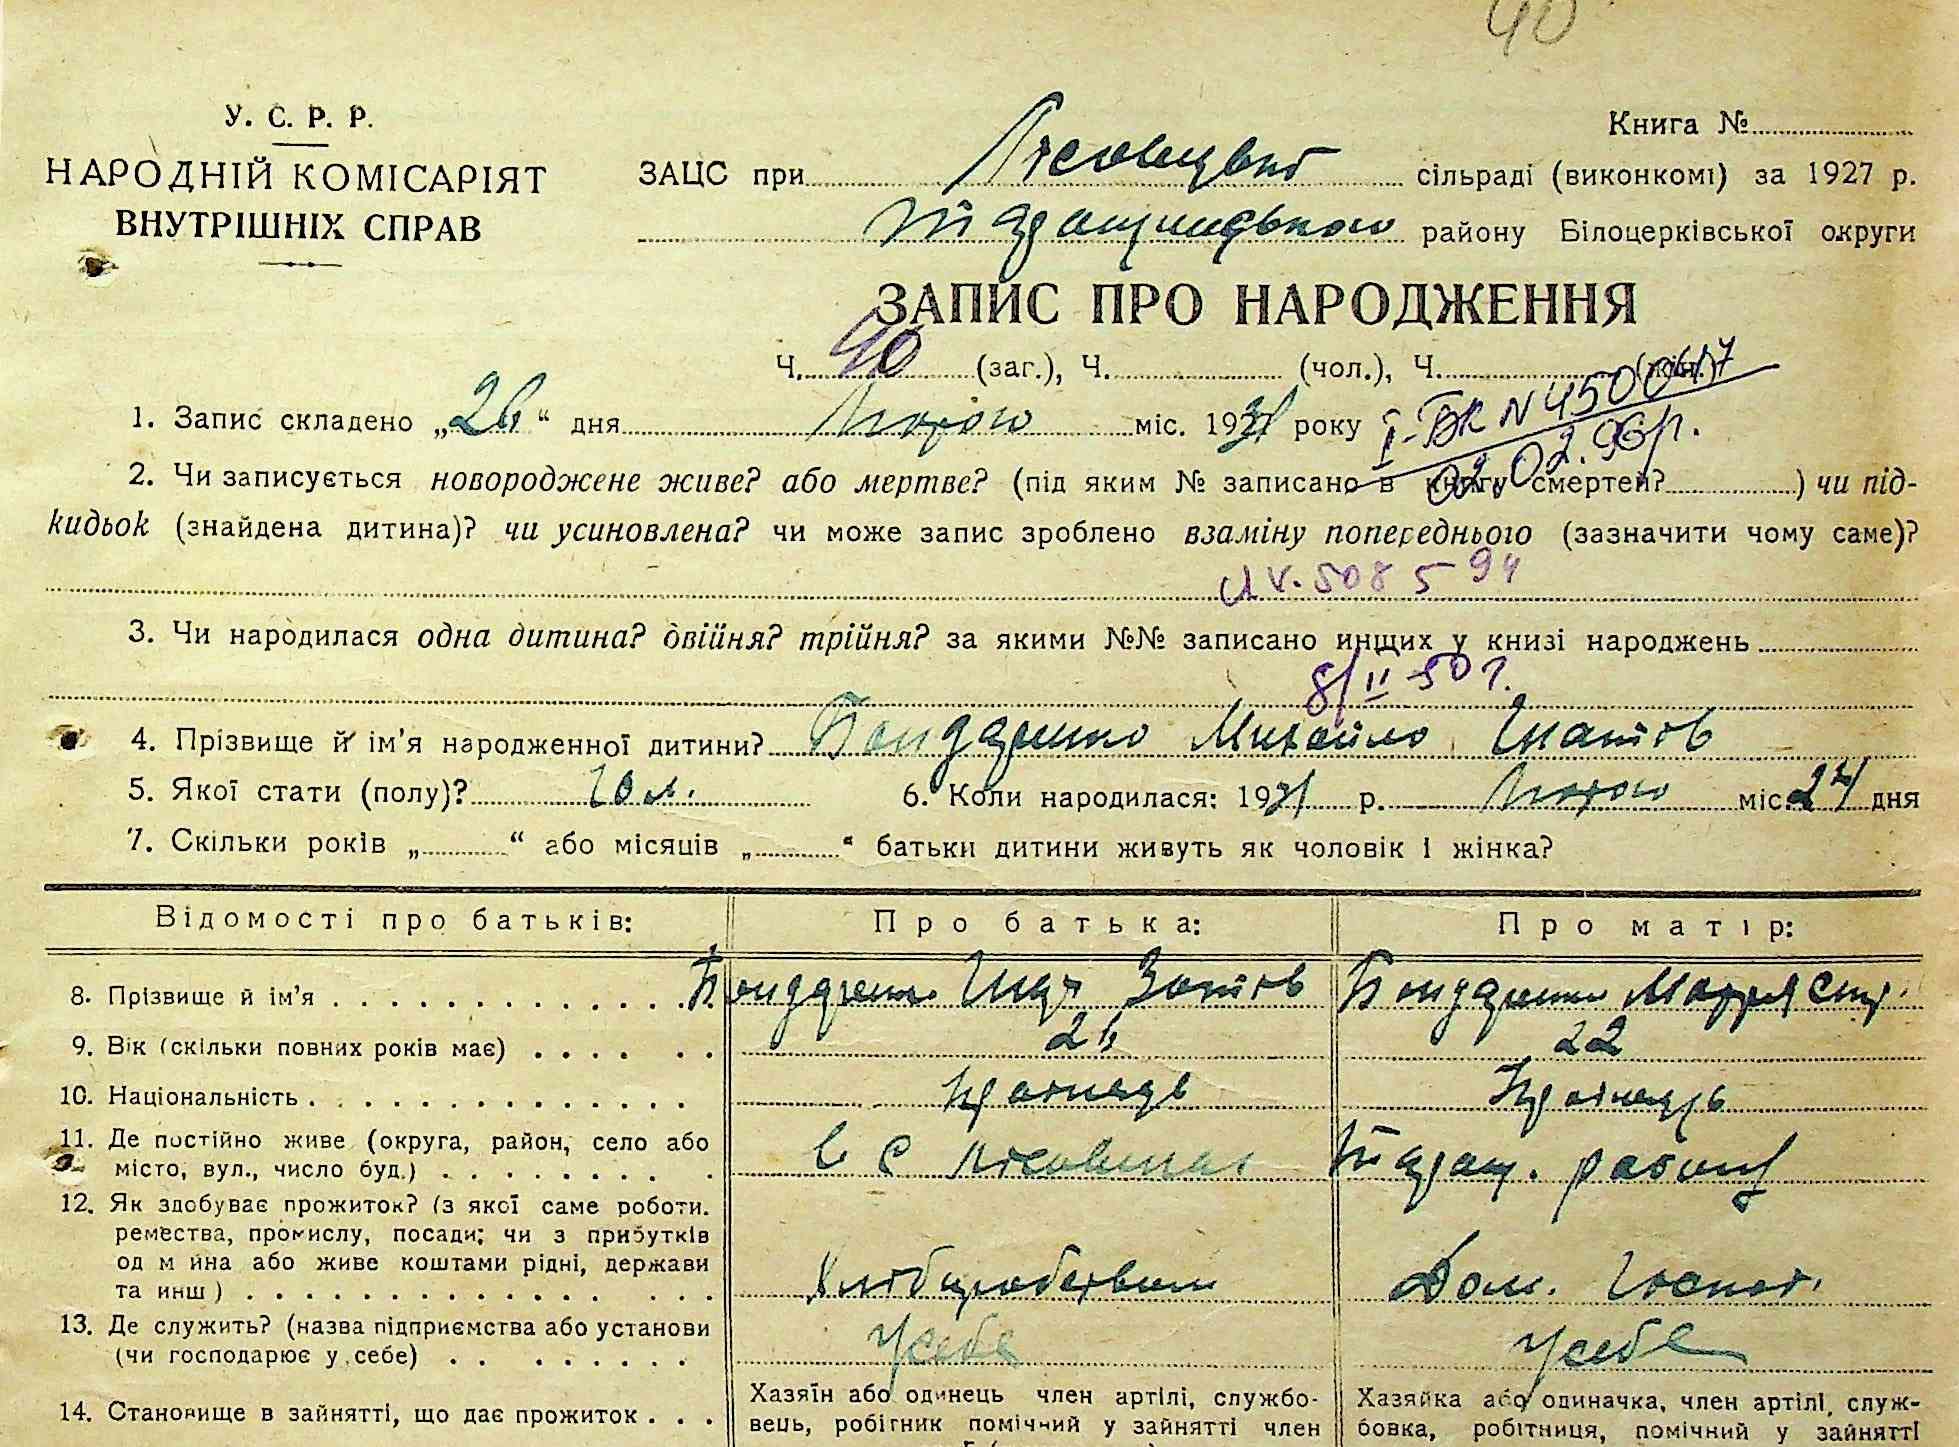 40
У. С. Р. Р.
НАРОДНІЙ КОМІСАРІЯТ
ВНУТРІШНІХ СПРАВ
Книга №
ЗАЦС при сільраді (виконкомі) за 1927 р.
району Білоцерківської округи
ЗАПИС ПРО НАРОДЖЕННЯ
Ч. 40 (заг.), Ч. (чол.), Ч. (жін.)
1. Запис складено „26“ дня Лютого міс. 1931 року
І-БК № 450067
02.02.96р.
2. Чи записується новороджене живе? або мертве? (під яким № записано в книгу смертей? ) чи під-
кидьок (знайдена дитина)? чи усиновлена? чи може запис зроблено взаміну попереднього (зазначити чому саме)?
508594
3. Чи народилася одна дитина? двійня? трійня? за якими №№ записано инщих у книзі народжень
8/II 50 г.
4. Прізвище й ім'я народженної дитини? Бондаренко Михайло Гнатов
5. Якої стати (полу)? Чол. 6. Коли народилася: 1931 р. Лютого міс. 24 дня
7. Скільки років „ “ або місяців „ “ батьки дитини живуть як чоловік і жінка?
Відомості про батьків: Про батька: Про матір:
8. Прізвище й ім'я Бондаренко Гнат Зотов Бондаренко
9. Вік (скільки повних років має) 22
10. Національність Українець
11. Де постійно живе (округа, район, село або
місто, вул., число буд.) в с район
12. Як здобуває прожиток? (з якої саме роботи.
ремества, промислу, посади; чи з прибутків
од м йна або живе коштами рідні, держави
та инш) Хліборобством Дом. Господ.
13. Де служить? (назва підприємства або установи
(чи господарює у себе) У себе У себе
14. Становище в зайнятті, що дає прожиток
Хазяїн або одинець член артілі, службо-
вець, робітник помічний у зайнятті член
Хазяйка або одиначка, член артілі, служ-
бовка, робітниця, помічний у зайнятті